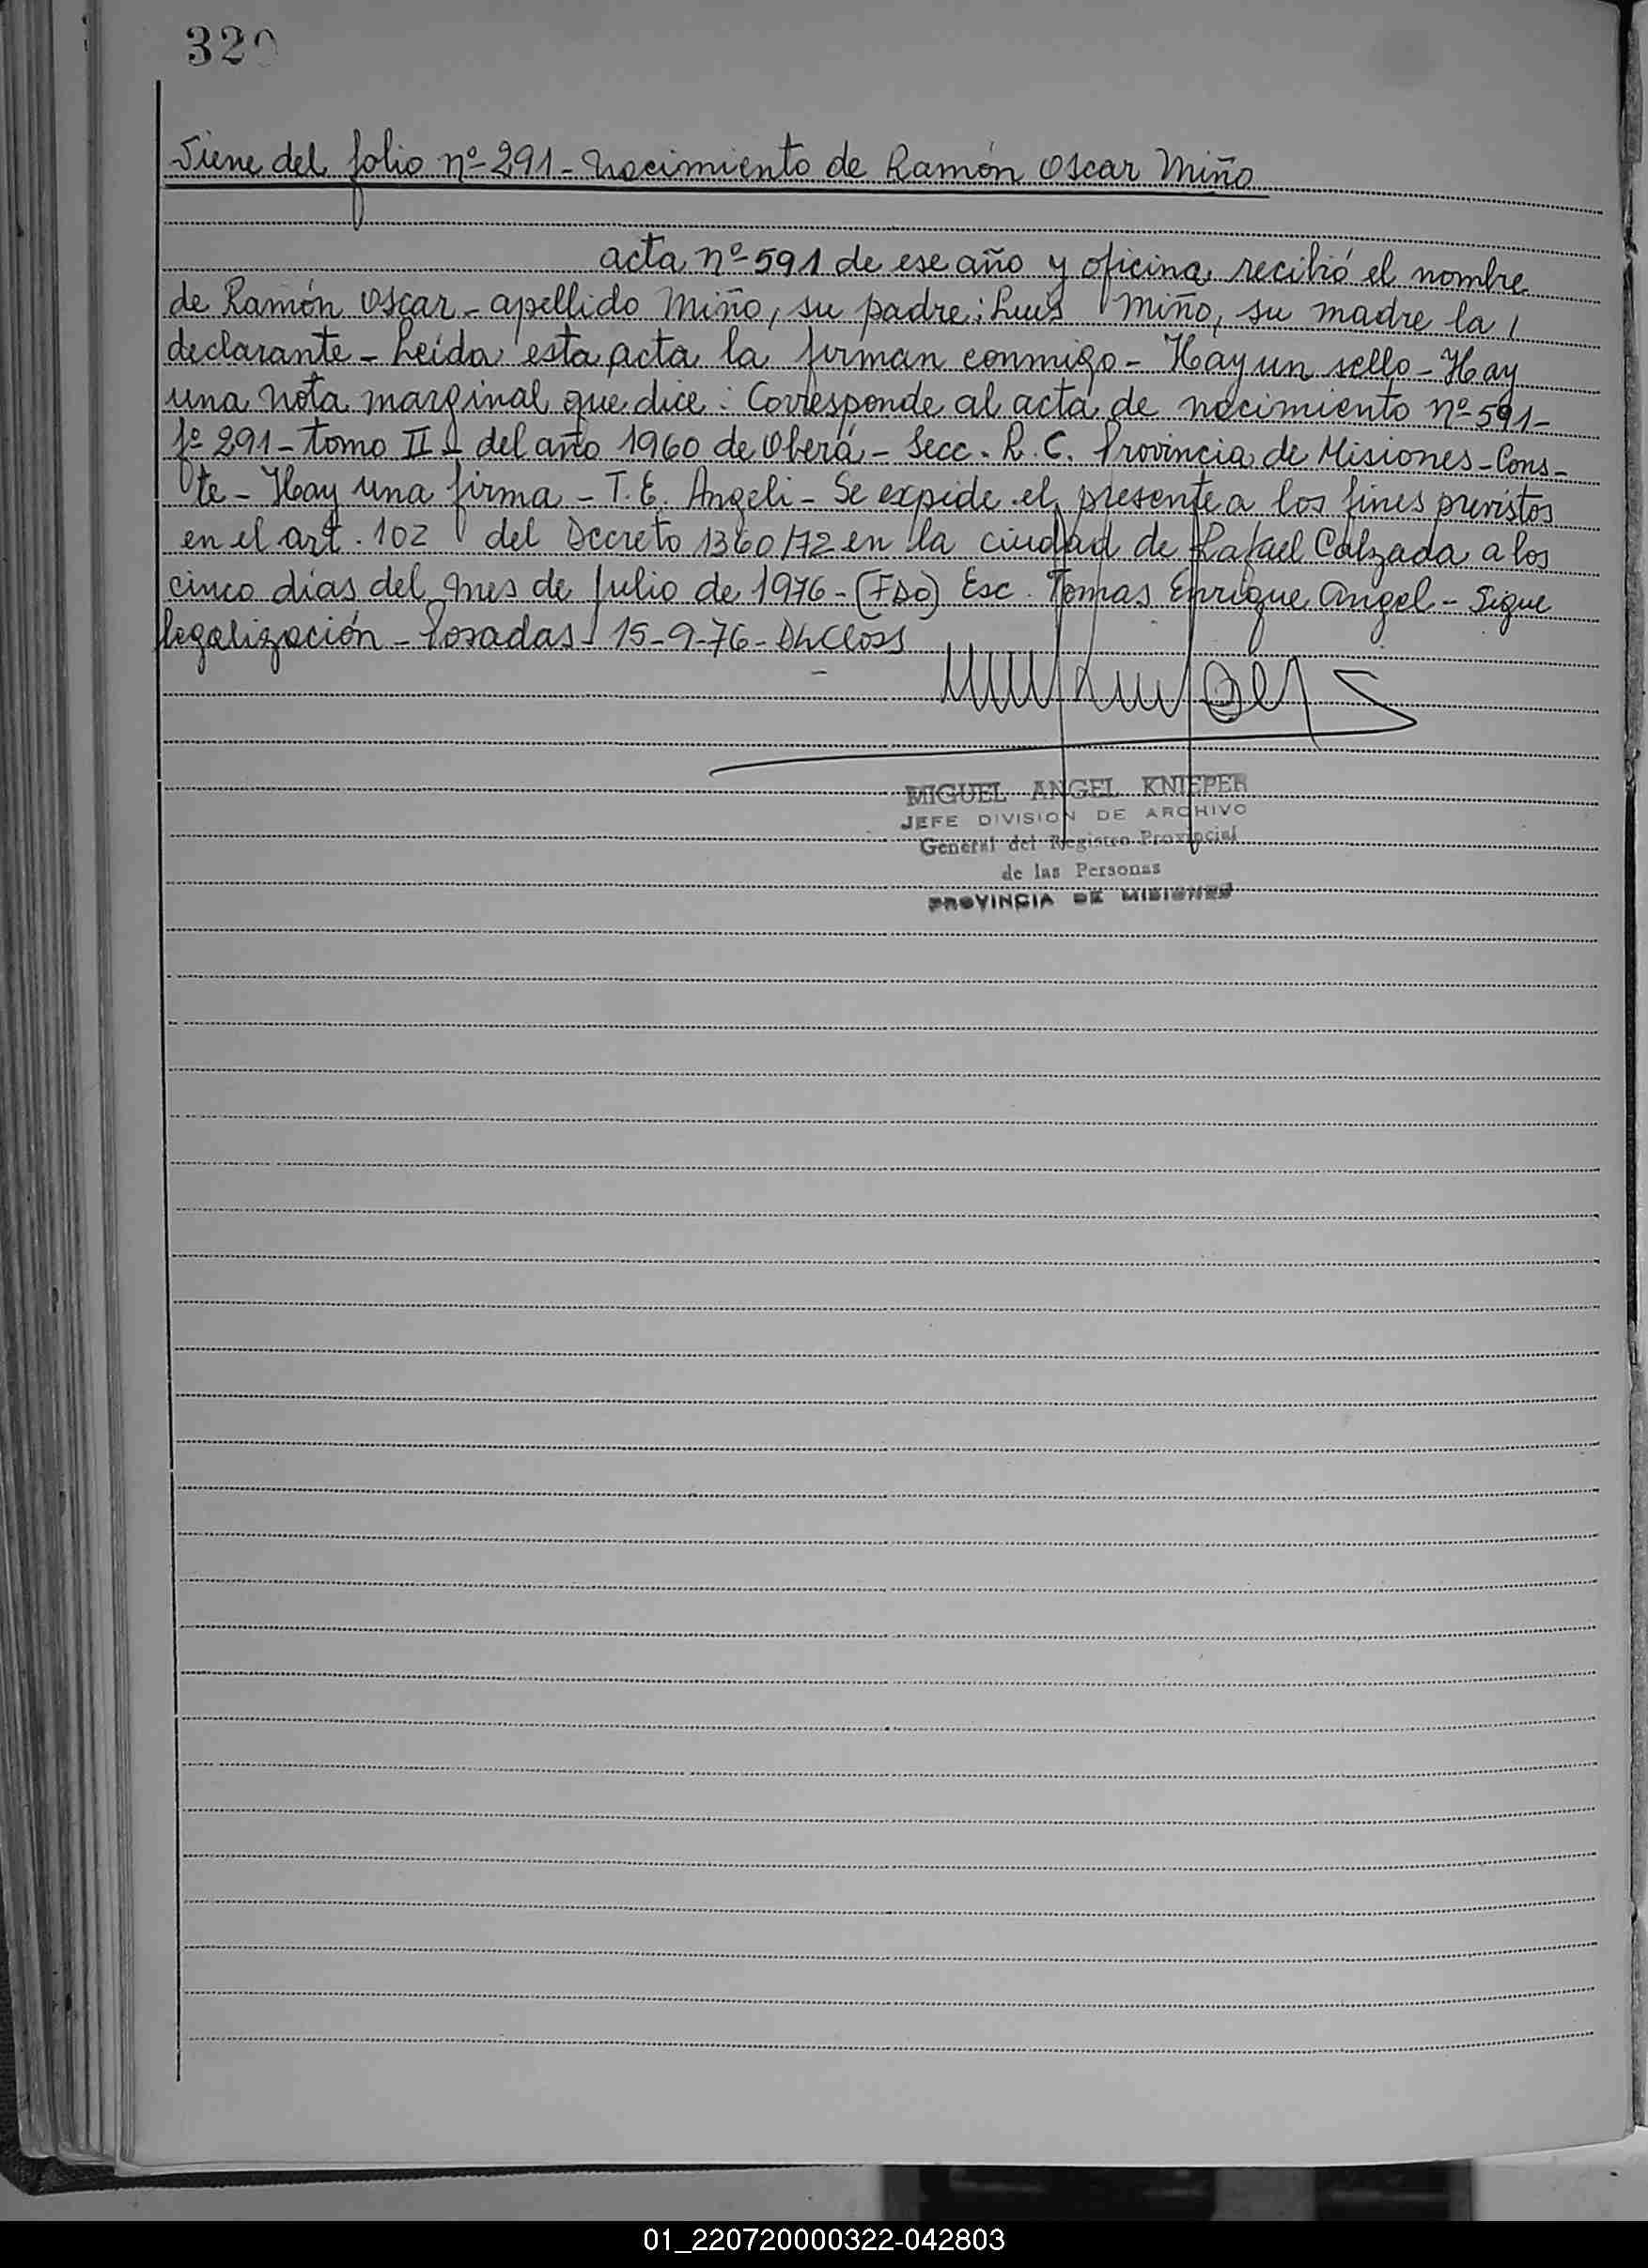 320
Viene del folio nº 291 - Nacimiento de Ramón Oscar Miño
acta nº 591 de ese año y oficina, recibió el nombre
de Ramón Oscar - apellido Miño, su padre: Luis Miño, su madre la
declarante - Leída esta acta la firman conmigo - Hay un sello - Hay
una nota marginal que dice: Corresponde al acta de nacimiento nº 591 -
fº 291 - tomo II - del año 1960 de Oberá - Secc. R. C. Provincia de Misiones - Cons-
te - Hay una firma - T. E. Angeli - Se expide el presente a los fines previstos
en el art. 102 del Decreto 1360/72 en la ciudad de Rafael Calzada a los
cinco días del mes de Julio de 1976 - (FDO) Esc. Tomas Enrique Angel - Sigue
legalización - Posadas - 15-9-76 -
MIGUEL ANGEL KNIEPER
JEFE DIVISION DE ARCHIVO
General del Registro Provincial
de las Personas
PROVINCIA DE MISIONES
01_220720000322-042803